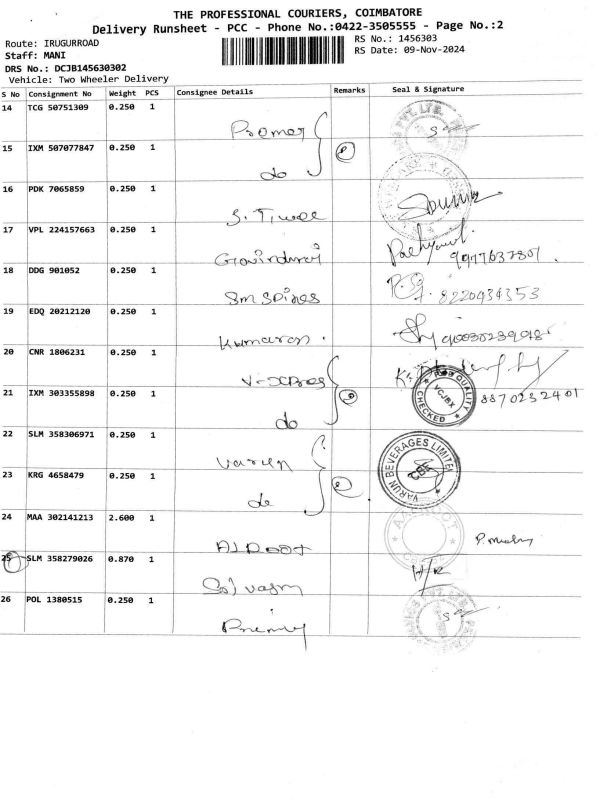 THE PROFESSIONAL COURIERS, COIMBATORE
Delivery Runsheet - PCC - Phone No.:0422-3505555 - Page No.:2
Route: IRUGURROAD
RS No.: 1456303
Staff: MANI
RS Date: 09-Nov-2024
DRS No.: DCJB145630302
Vehicle: Two Wheeler Delivery
S No Consignment No Weight PCS Consignee Details Remarks Seal & Signature
14 TCG 50751309 0.250 1
15 IXM 507077847 0.250 1
do
16 PDK 7065859 0.250 1
17 VPL 224157663 0.250 1
Govindaraj
18 DDG 901052 0.250 1
8220434353
19 EDQ 20212120 0.250 1
Kumaran
20 CNR 1806231 0.250 1
21 IXM 303355898 0.250 1
do
QUALITY
VCJBX
CHECKED
8870232401
22 SLM 358306971 0.250 1
Varun
VARUN BEVERAGES LIMITED
23 KRG 4658479 0.250 1
do
24 MAA 302141213 2.600 1
25 SLM 358279026 0.870 1
26 POL 1380515 0.250 1